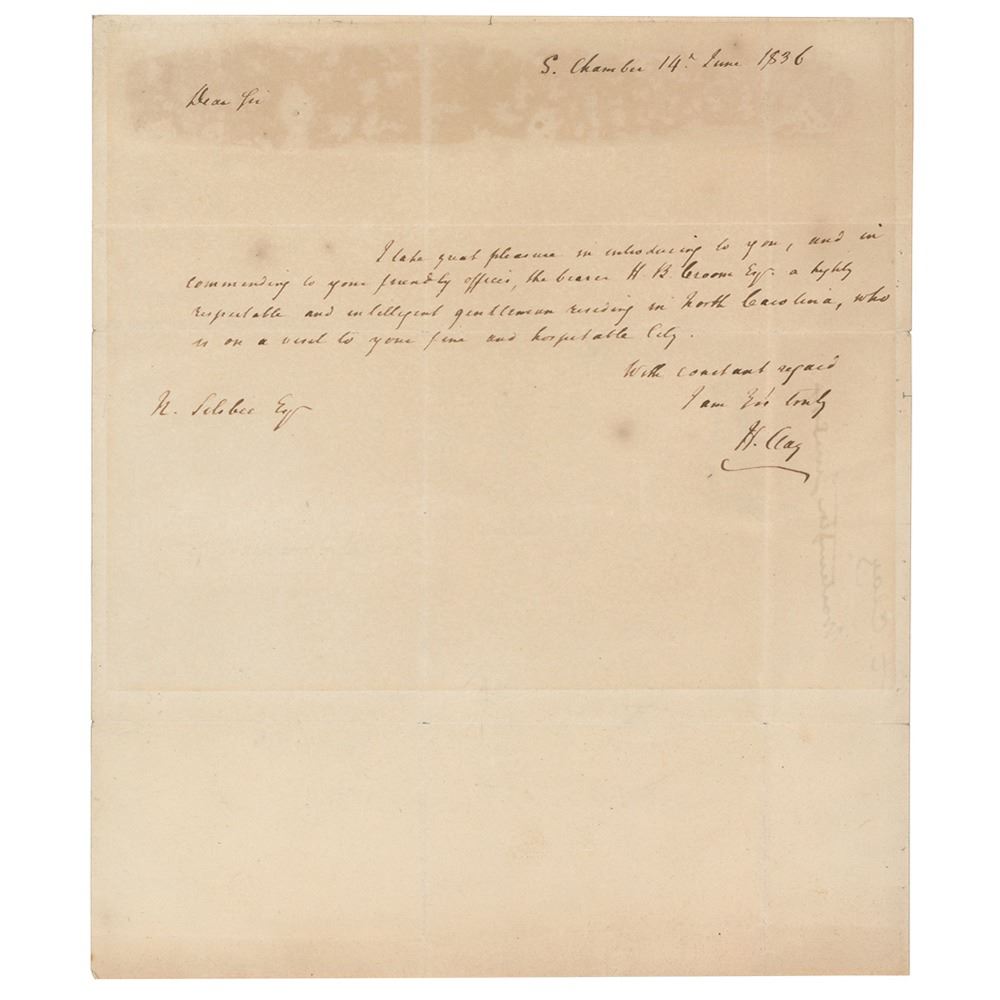 S. Chamber 14h June 1836
Dear Sir
I take great pleasure in introducing to you, and in
commending to your friendly offices, the bearer H. B. Croom Esqr. a highly
respectable and intelligent gentleman residing in North Carolina, who
is on a visit to your fine and hospitable City.
With constant regard
I am Yrs truly
N. Silsbee Esqr
H. Clay